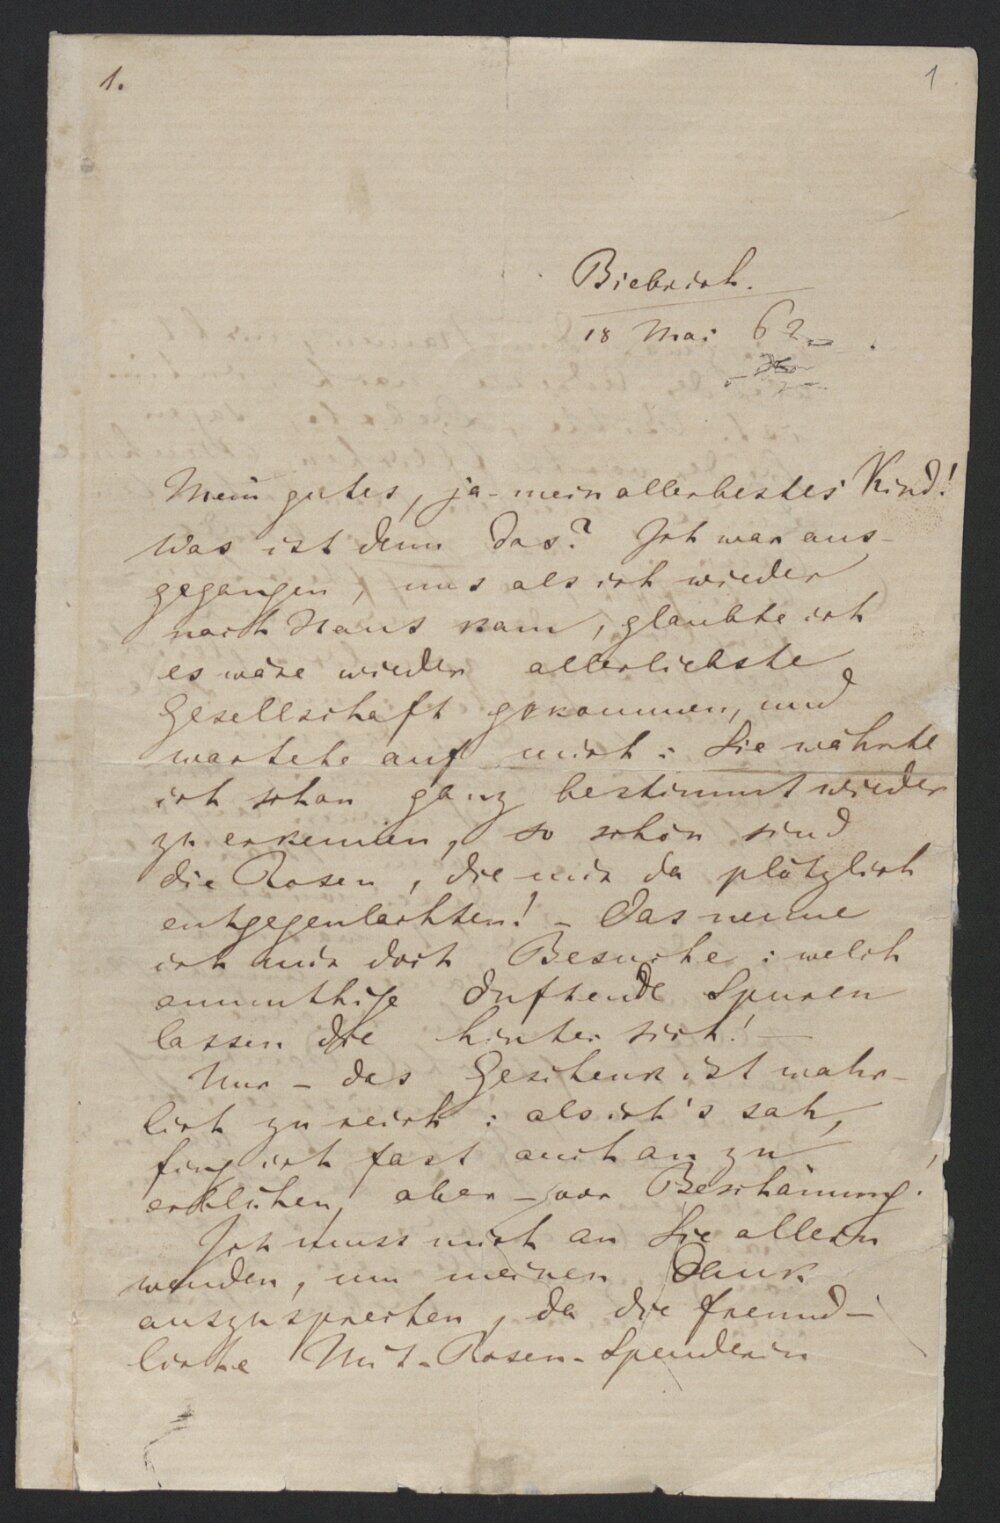 1.
1
Biebrich.
18 Mai 62
Mein gutes, ja - mein allerbestes Kind!
Was ist denn das? Ich war aus-
gegangen, und als ich wieder
nach Haus kam, glaubte ich
es wäre wieder allerliebste
Gesellschaft gekommen, und
wartete auf mich: Sie wähnte
ich schon ganz bestimmt wieder
zu erkennen, so schön sind
die Rosen, die mir da plötzlich
entgegenlachten! - Das nenne
ich mir doch Besuche: welch
anmuthige duftende Spuren
lassen die hinter sich! -
Nur - das Geschenk ist wahr-
lich zu reich: als ich's sah,
fing ich fast auch an zu
erblühen, aber - vor Beschämung.
Ich muss mich an Sie allein
wenden, um meinen Dank
auszusprechen, da die freund-
liche Mit-Rosen-Spenderin